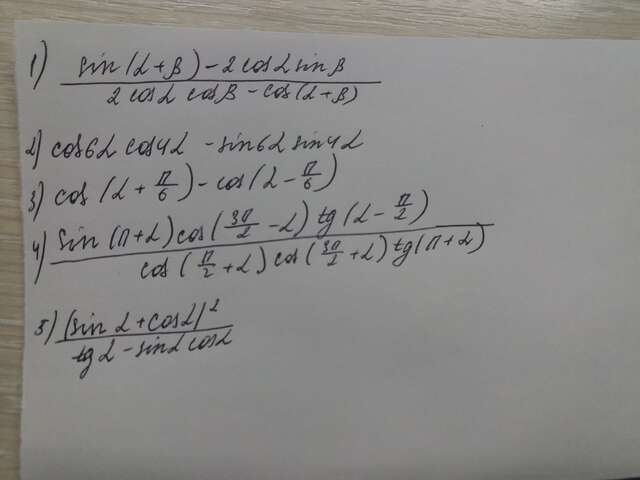 1) (sin(α+β) - 2cosα sinβ) / (2cosα cosβ - cos(α+β))
2) cos6α cos4α - sin6α sin4α
3) cos(α + π/6) - cos(α - π/6)
4) (sin(π+α) cos(3π/2 - α) tg(α - π/2)) / (cos(π/2 + α) cos(3π/2 + α) tg(π+α))
5) (sinα + cosα)² / (tgα - sinα cosα)